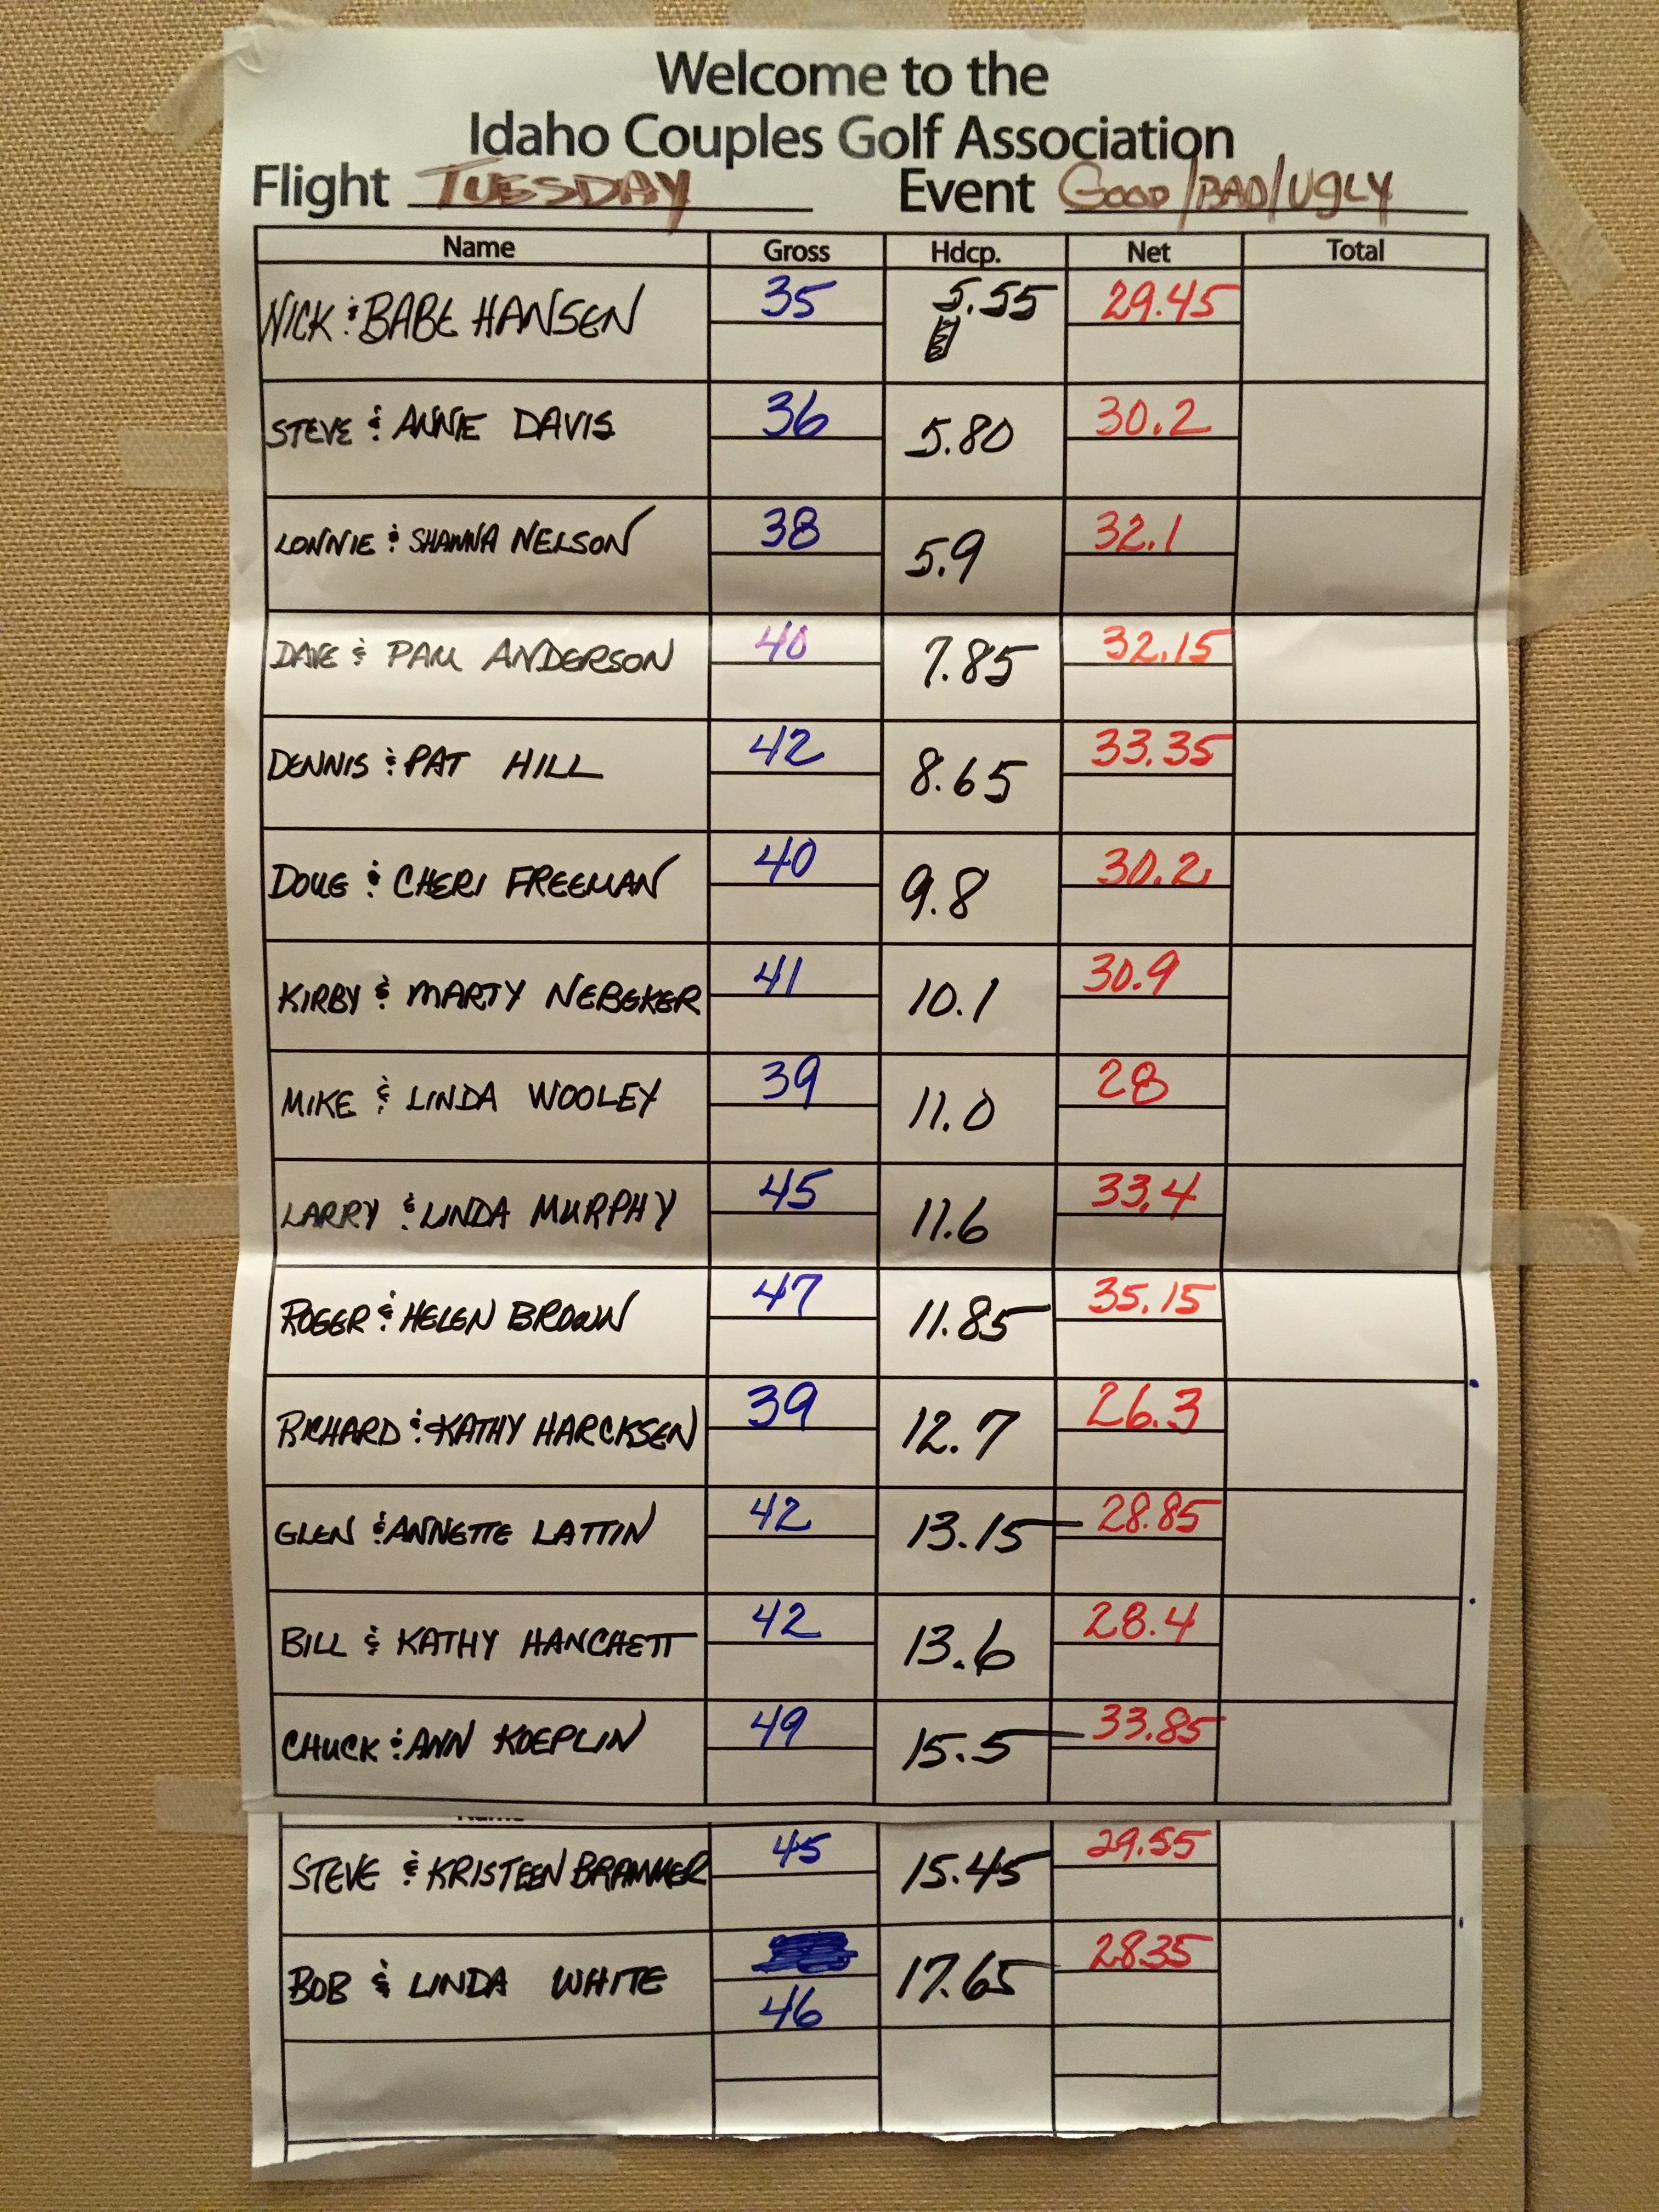 Welcome to the
Idaho Couples Golf Association
Flight TUESDAY Event GOOD/BAD/UGLY
Name Gross Hdcp. Net Total
NICK & BABE HANSEN 35 5.55 29.45
STEVE & ANNIE DAVIS 36 5.80 30.2
LONNIE & SHAWNA NELSON 38 5.9 32.1
DAVE & PAM ANDERSON 40 7.85 32.15
DENNIS & PAT HILL 42 8.65 33.35
DOUG & CHERI FREEMAN 40 9.8 30.2
KIRBY & MARTY NEBEKER 41 10.1 30.9
MIKE & LINDA WOOLEY 39 11.0 28
LARRY & LINDA MURPHY 45 11.6 33.4
ROGER & HELEN BROWN 47 11.85 35.15
RICHARD & KATHY HARCKSEN 39 12.7 26.3
GLEN & ANNETTE LATTIN 42 13.15 28.85
BILL & KATHY HANCHETT 42 13.6 28.4
CHUCK & ANN KOEPLIN 49 15.5 33.85
STEVE & KRISTEEN BRAMMER 45 15.45 29.55
BOB & LINDA WHITE 46 17.65 28.35